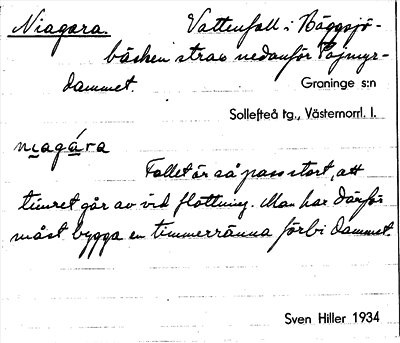 Niagara. Vattenfall i Häggsjö-
bäcken strax nedanför Pojmyr-
dammet.
Graninge s:n
Sollefteå tg., Västernorrl. l.
niagára
Fallet är så pass stort, att
timret går av vid flottning. Man har därför
måst bygga en timmerränna förbi dammet.
Sven Hiller 1934